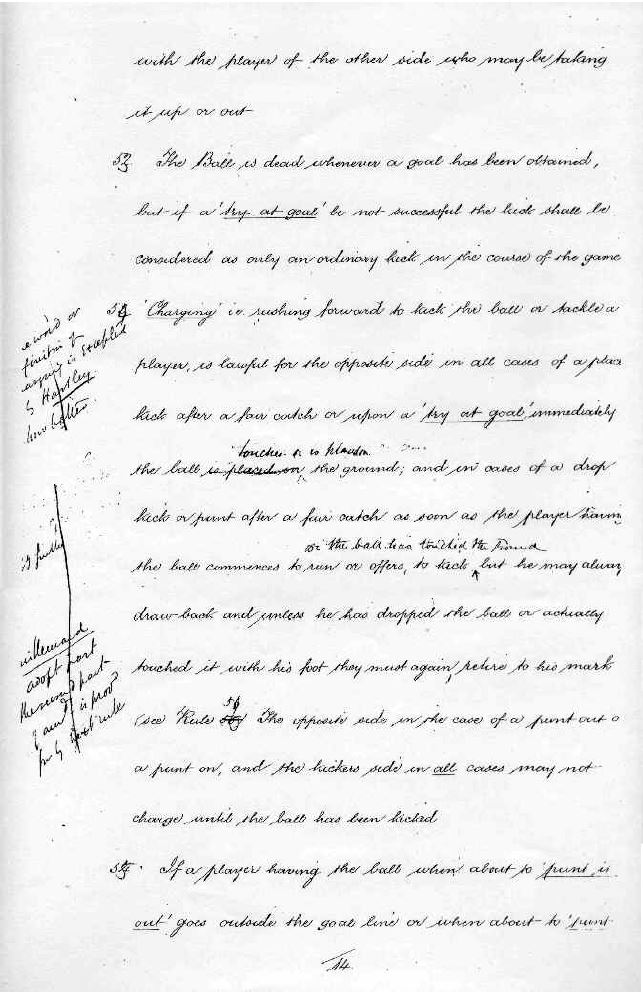 with the player of the other side who may be taking
it up or out
53 The Ball is dead whenever a goal has been obtained,
but if a 'try at goal' be not successful the kick shall be
considered as only an ordinary kick in the course of the game
'Charging' ie. rushing forward to kick the ball or tackle a
player, is lawful for the opposite side in all cases of a place
kick after a fair catch or upon a 'try at goal' immediately
touches or is placed on
the ball is placed on the ground; and in cases of a drop
kick or punt after a fair catch as soon as the player having
or the ball has touched the ground
the ball commences to run or offers, to kick but he may always
draw back and unless he has dropped the ball or actually
touched it with his foot they must again retire to his mark
56
(see Rule The opposite side in the case of a punt out o
a punt on, and the kickers side in all cases may not
charge until the ball has been kicked
If a player having the ball when about to 'punt it
out' goes outside the goal line or when about to 'punt
14
by Hartley
adopt part
the second part